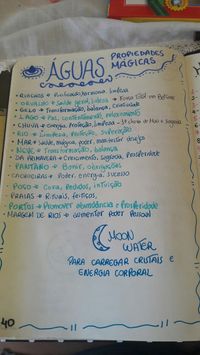 ÁGUAS PROPIEDADES MÁGICAS
RIACHOS → Profundo, harmonia, limpeza
ORVALHO → Saúde geral, beleza
GELO → Transformação, balança, Criatividade
LAGO → Paz, contentamento, relaxamento
CHUVA → Energia, Proteção, limpeza → 1ª chuva de Maio é Sagrada
RIO → Limpeza, Proteção, superação
MAR → Saúde, mágica, poder, manifestar desejos
NEVE → Transformação, balança
DA PRIMAVERA → Crescimento, sagrada, Prosperidade
PANTANO → Banir, obrigações
CACHOEIRAS → Poder, energia, sucesso
POÇO → Cura, Pedidos, intuição
PRAIAS → Rituais, feitiços,
PORTOS → Promover abundância e Prosperidade
MARGEM DE RIOS → aumentar poder Pessoal
MOON
WATER
PARA CARREGAR CRISTAIS E
ENERGIA CORPORAL
40